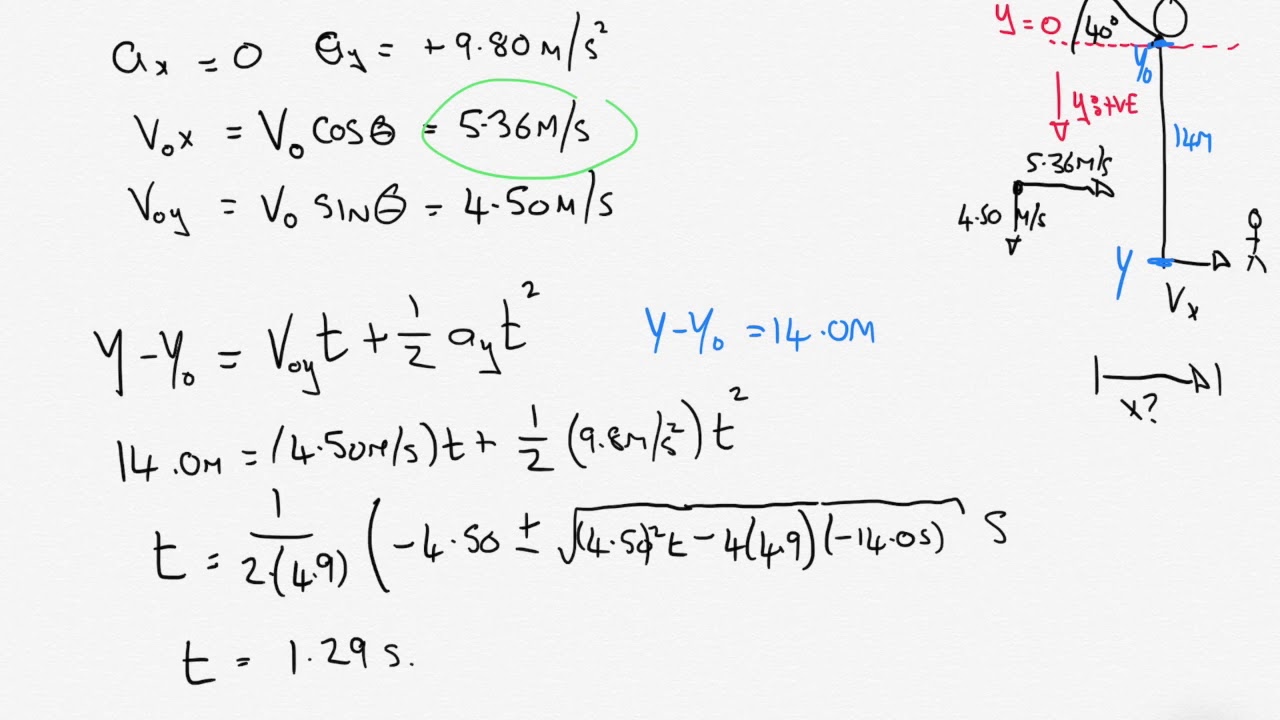 aₓ = 0 a_y = +9.80 M/s²
V₀ₓ = V₀ COSθ = 5.36 M/s
V₀y = V₀ SINθ = 4.50 M/s
Y - Y₀ = V₀y t + 1/2 a_y t²
Y - Y₀ = 14.0M
14.0M = (4.50M/s)t + 1/2 (9.8M/s²) t²
t = 1/2·(4.9) (-4.50 ± √(4.50)²t - 4(4.9)(-14.0s) S
t = 1.29 s.
Y=0
40°
Y₀
y:+VE
14M
5.36M/s
4.50 M/s
Y
Vₓ
x?